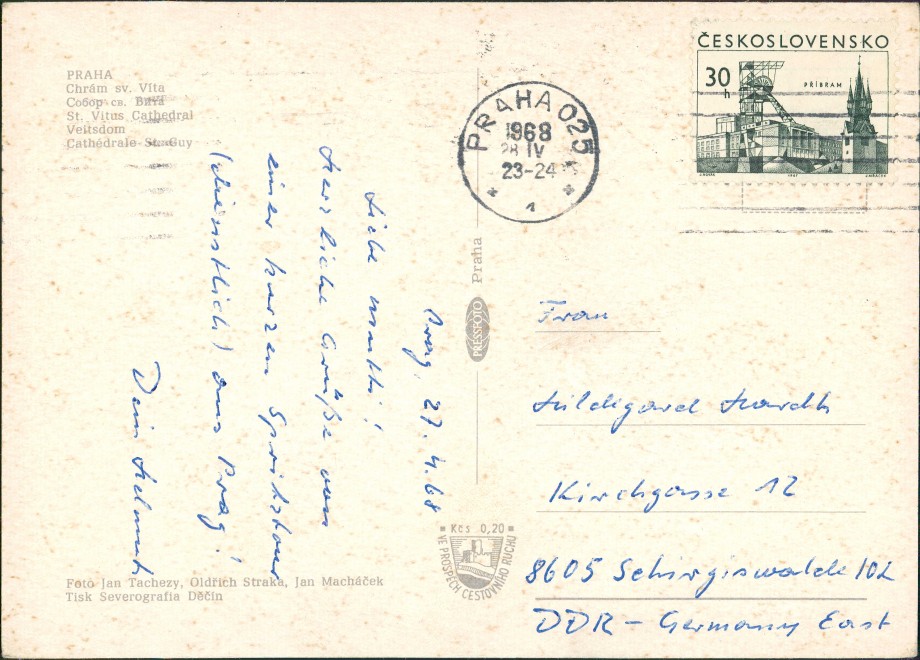 PRAHA
Chrám sv. Víta
Собор св. Вита
St. Vitus Cathedral
Veitsdom
Cathédrale St. Guy
ČESKOSLOVENSKO
30 h
PŘÍBRAM
1967
PRAHA 025
1968
28 IV
23-24
1
Prag, 27.4.68
Liebe Mutti!
Herzliche Grüße von
einer kurzen Spritztour
(dienstlich) aus Prag!
Dein Helmut
PRESSFOTO Praha
Frau
Hildegard
Kirchgasse 12
8605 Schirgiswalde/OL
DDR - Germany East
Kčs 0,20
VE PROSPĚCH CESTOVNÍHO RUCHU
Foto Jan Tachezy, Oldřich Straka, Jan Macháček
Tisk Severografia Děčín